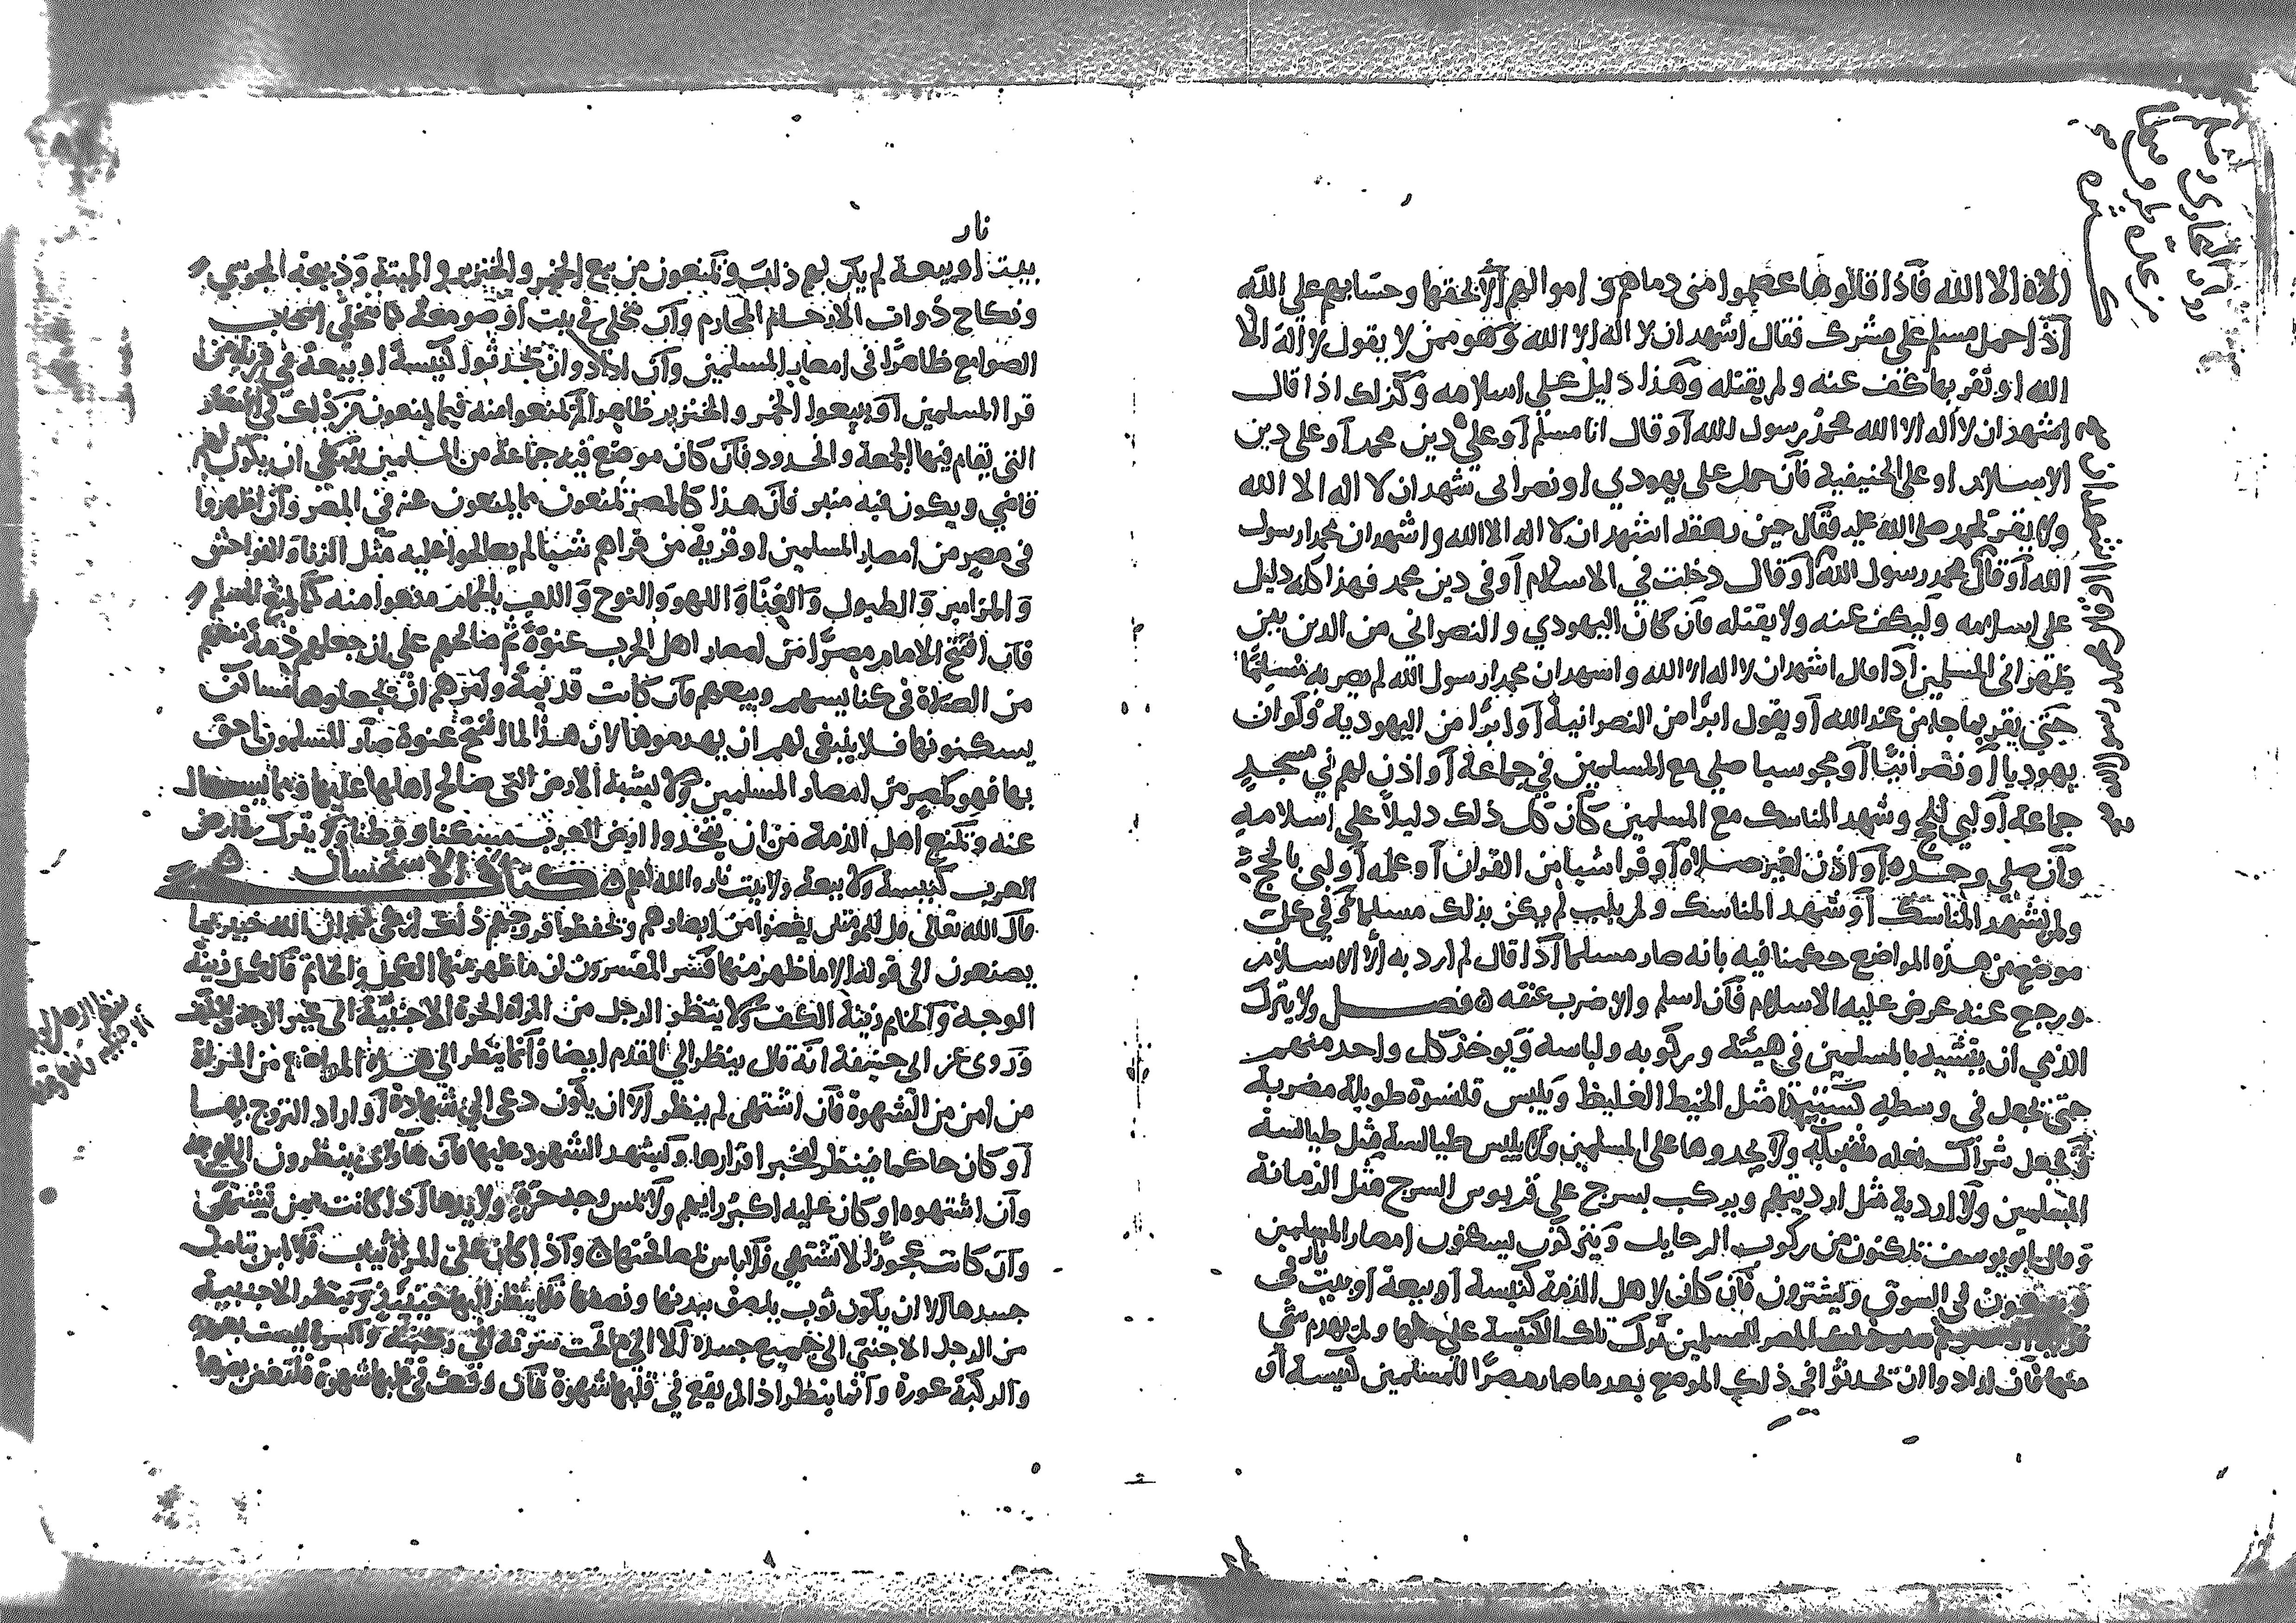 الاه الا الله فاذا قالوها عصموا مني دماهم و اموالهم الا بحقها وحسابهم على الله
اذا حمل مسلم على مشرك فقال اشهد ان لا اله الا الله وهو ممن لا يقول لا اله الا
الله او يقر بها كف عنه ولم يقتله وهذا دليل على اسلامه وكذلك اذا قال
اشهد ان لا اله الا الله محمد رسول الله او قال انا مسلم او على دين محمد او على دين
الاسلام او على الحنيفية فان حمل على يهودي او نصراني شهد ان لا اله الا الله
ولا يقر بمحمد صلى الله عليه فقال حين رهقه اشهد ان لا اله الا الله واشهد ان محمدا رسول
الله او قال محمد رسول الله او قال دخلت في الاسلام او في دين محمد فهذا كله دليل
على اسلامه وليكف عنه ولا يقتله فان كان اليهودي والنصراني من الذين بين
ظهراني المسلمين اذا قال اشهد ان لا اله الا الله واشهد ان محمدا رسول الله لم يصر به مسلما
حتى يقر بما جا من عند الله او يقول ابرا من النصرانية او ابرا من اليهودية ولو ان
يهوديا او نصرانيا او مجوسيا صلى مع المسلمين في جماعة او اذن لهم في مسجد
جماعة او لبى للحج وشهد المناسك مع المسلمين كان كل ذلك دليلا على اسلامه
وان صلى وحده او اذن لغير صلاه او قرا شيا من القران او عمله او لبى بالحج
ولم يشهد المناسك او شهد المناسك ولم يلب لم يكن بذلك مسلما وفي كل
موضع من هذه المواضع حكمنا فيه بانه صار مسلما اذا قال لم ارد به الا الاسلام
ورجع عنه عرض عليه الاسلام فان اسلم والا ضرب عنقه ه فصل ولا يترك
الذمي ان يتشبه بالمسلمين في هيئته وركوبه ولباسه ويوخذ كل واحد منهم
حتى يجعل في وسطه كستيجا مثل الخيط الغليظ ويلبس قلنسوة طويلة مضربة
ويجعل شراك نعله ولا يلبس طيالسة مثل طيالسة
المسلمين ولا اردية مثل ارديتهم ويركب بسرج على قربوس السرج مثل الرمانة
وقال ابو يوسف من ركوب ويتركون يسكنون امصار المسلمين
في السوق ويشترون فان كان لاهل الذمة كنيسة او بيعة او بيت نار في
المصر للمسلمين ترك تلك الكنيسة على حالها ولم يهدم شي
منها فان ارادوا ان يحدثوا في ذلك الموضع بعد ما صار مصرا للمسلمين كنيسة او
اشهد ان محمد رسول الله
نار
بيت او بيعة لم يكن لهم ذلك ويمنعون من بيع الخمر والخنزير والميتة وذبيحة المجوسي
ونكاح ذوات الارحام المحارم وان تخلى في بيت او صومعة كما تتخلى اصحاب
الصوامع ظاهرا في امصار المسلمين وان ارادوا ان يحدثوا كنيسة او بيعة في قرية من
قرا المسلمين او يبيعوا الخمر والخنزير ظاهرا لم يمنعوا منه فيما يمنعون من ذلك في الامصار
التي يقام فيها الجمعة والحدود فان كان موضع فيه جماعة من المسلمين ان يكون لهم
قاضي ويكون فيه منبر فان هذا كالمصر يمنعون مما يمنعون عنه في المصر وان اظهروا
في مصر من امصار المسلمين او قرية من قراهم شيا لم يصالحوا عليه مثل الزنا والفواحش
والمزامير والطبول والغنا واللهو والنوح واللعب بالحمام منعوا منه كما يمنع المسلم
فان افتتح الامام مصرا من امصار اهل الحرب عنوة ثم صالحهم على ان جعلهم ذمة منعهم
من الصلاة في كنايسهم وبيعهم فان كانت قديمة وامرهم ان يجعلوها مساكن
يسكنونها فلا ينبغي لهم ان يهدموها لان هذا لما افتتح عنوة صار المسلمون احق
بها فهو كمصر من امصار المسلمين ولا يشبه الارض التي صالح اهلها عليها
عنه ويمنع اهل الذمة من ان يتخذوا ارض العرب مسكنا ووطنا ولا يترك في ارض
العرب كنيسة ولا بيعة ولا بيت نار والله اعلم ه كتاب الاستحسان ه
قال الله تعالى قل للمومنين يغضوا من ابصارهم ويحفظوا فروجهم ذلك ازكى لهم ان الله خبير بما
يصنعون الى قوله الا ما ظهر منها فسر المفسرون ان ما ظهر منها الكحل والخاتم فالكحل زينة
الوجه والخاتم زينة الكف ولا ينظر الرجل من المراه الحرة الاجنبية الى غير الوجه والكف
وروي عن ابي حنيفة انه قال ينظر الى القدم ايضا وانما ينظر الى هذه المواضع من المراة
من امن من الشهوة فان اشتهى لم ينظر الا ان يكون دعى الى شهادة او اراد التزوج بها
او كان حاكما فينظر ليخبر اقرارها وليشهد الشهود عليها فان هاولاي ينظرون الى الوجه
وان اشتهوه او كان عليه اكبر رايهم ولا تمس وجه حرة ولا يدها اذا كانت ممن تشتهى
وان كانت عجوزا لا تشتهي فلا باس واذا كان على المراة ثياب فلا باس بتامل
جسدها الا ان يكون ثوب يلصق ببدنها ويصفها فلا ينظر اليها حينئذ وتنظر الاجنبية
من الرجل الاجنبي الى جميع جسده الا الى ما تحت سرته الى ركبته والسرة ليست بعورة
والركبة عورة وانما ينظر اذا لم يقع في قلبها شهوة فان وقعت في قلبها شهوة فلتغض بصرها